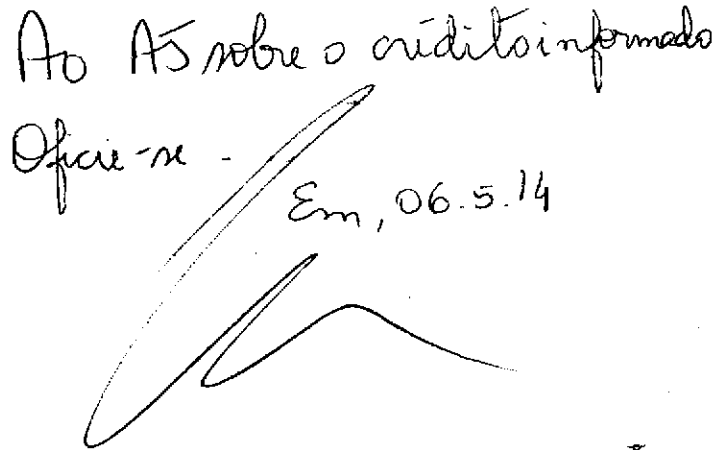 Ao AJ sobre o crédito informado
Oficie-se -
Em, 06.5.14